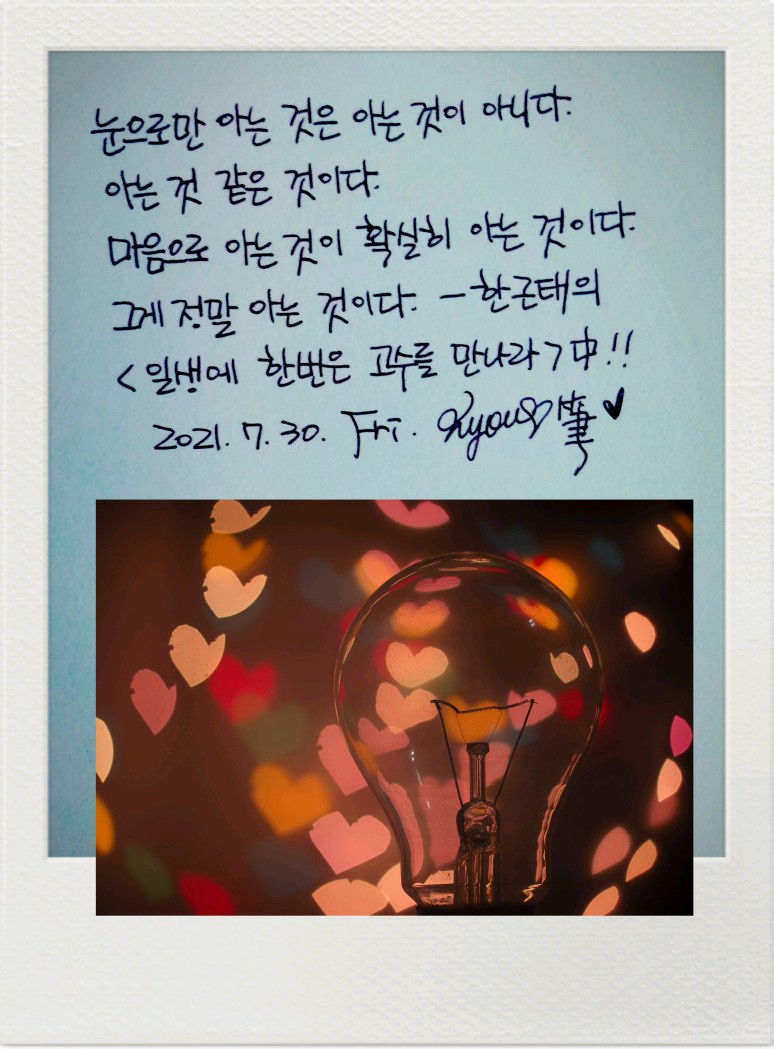 눈으로만 아는 것은 아는 것이 아니다.
아는 것 같은 것이다.
마음으로 아는 것이 확실히 아는 것이다.
그게 정말 아는 것이다. - 한근태의
<일생에 한번은 고수를 만나라> 中!!
2021. 7. 30. Fri. 筆